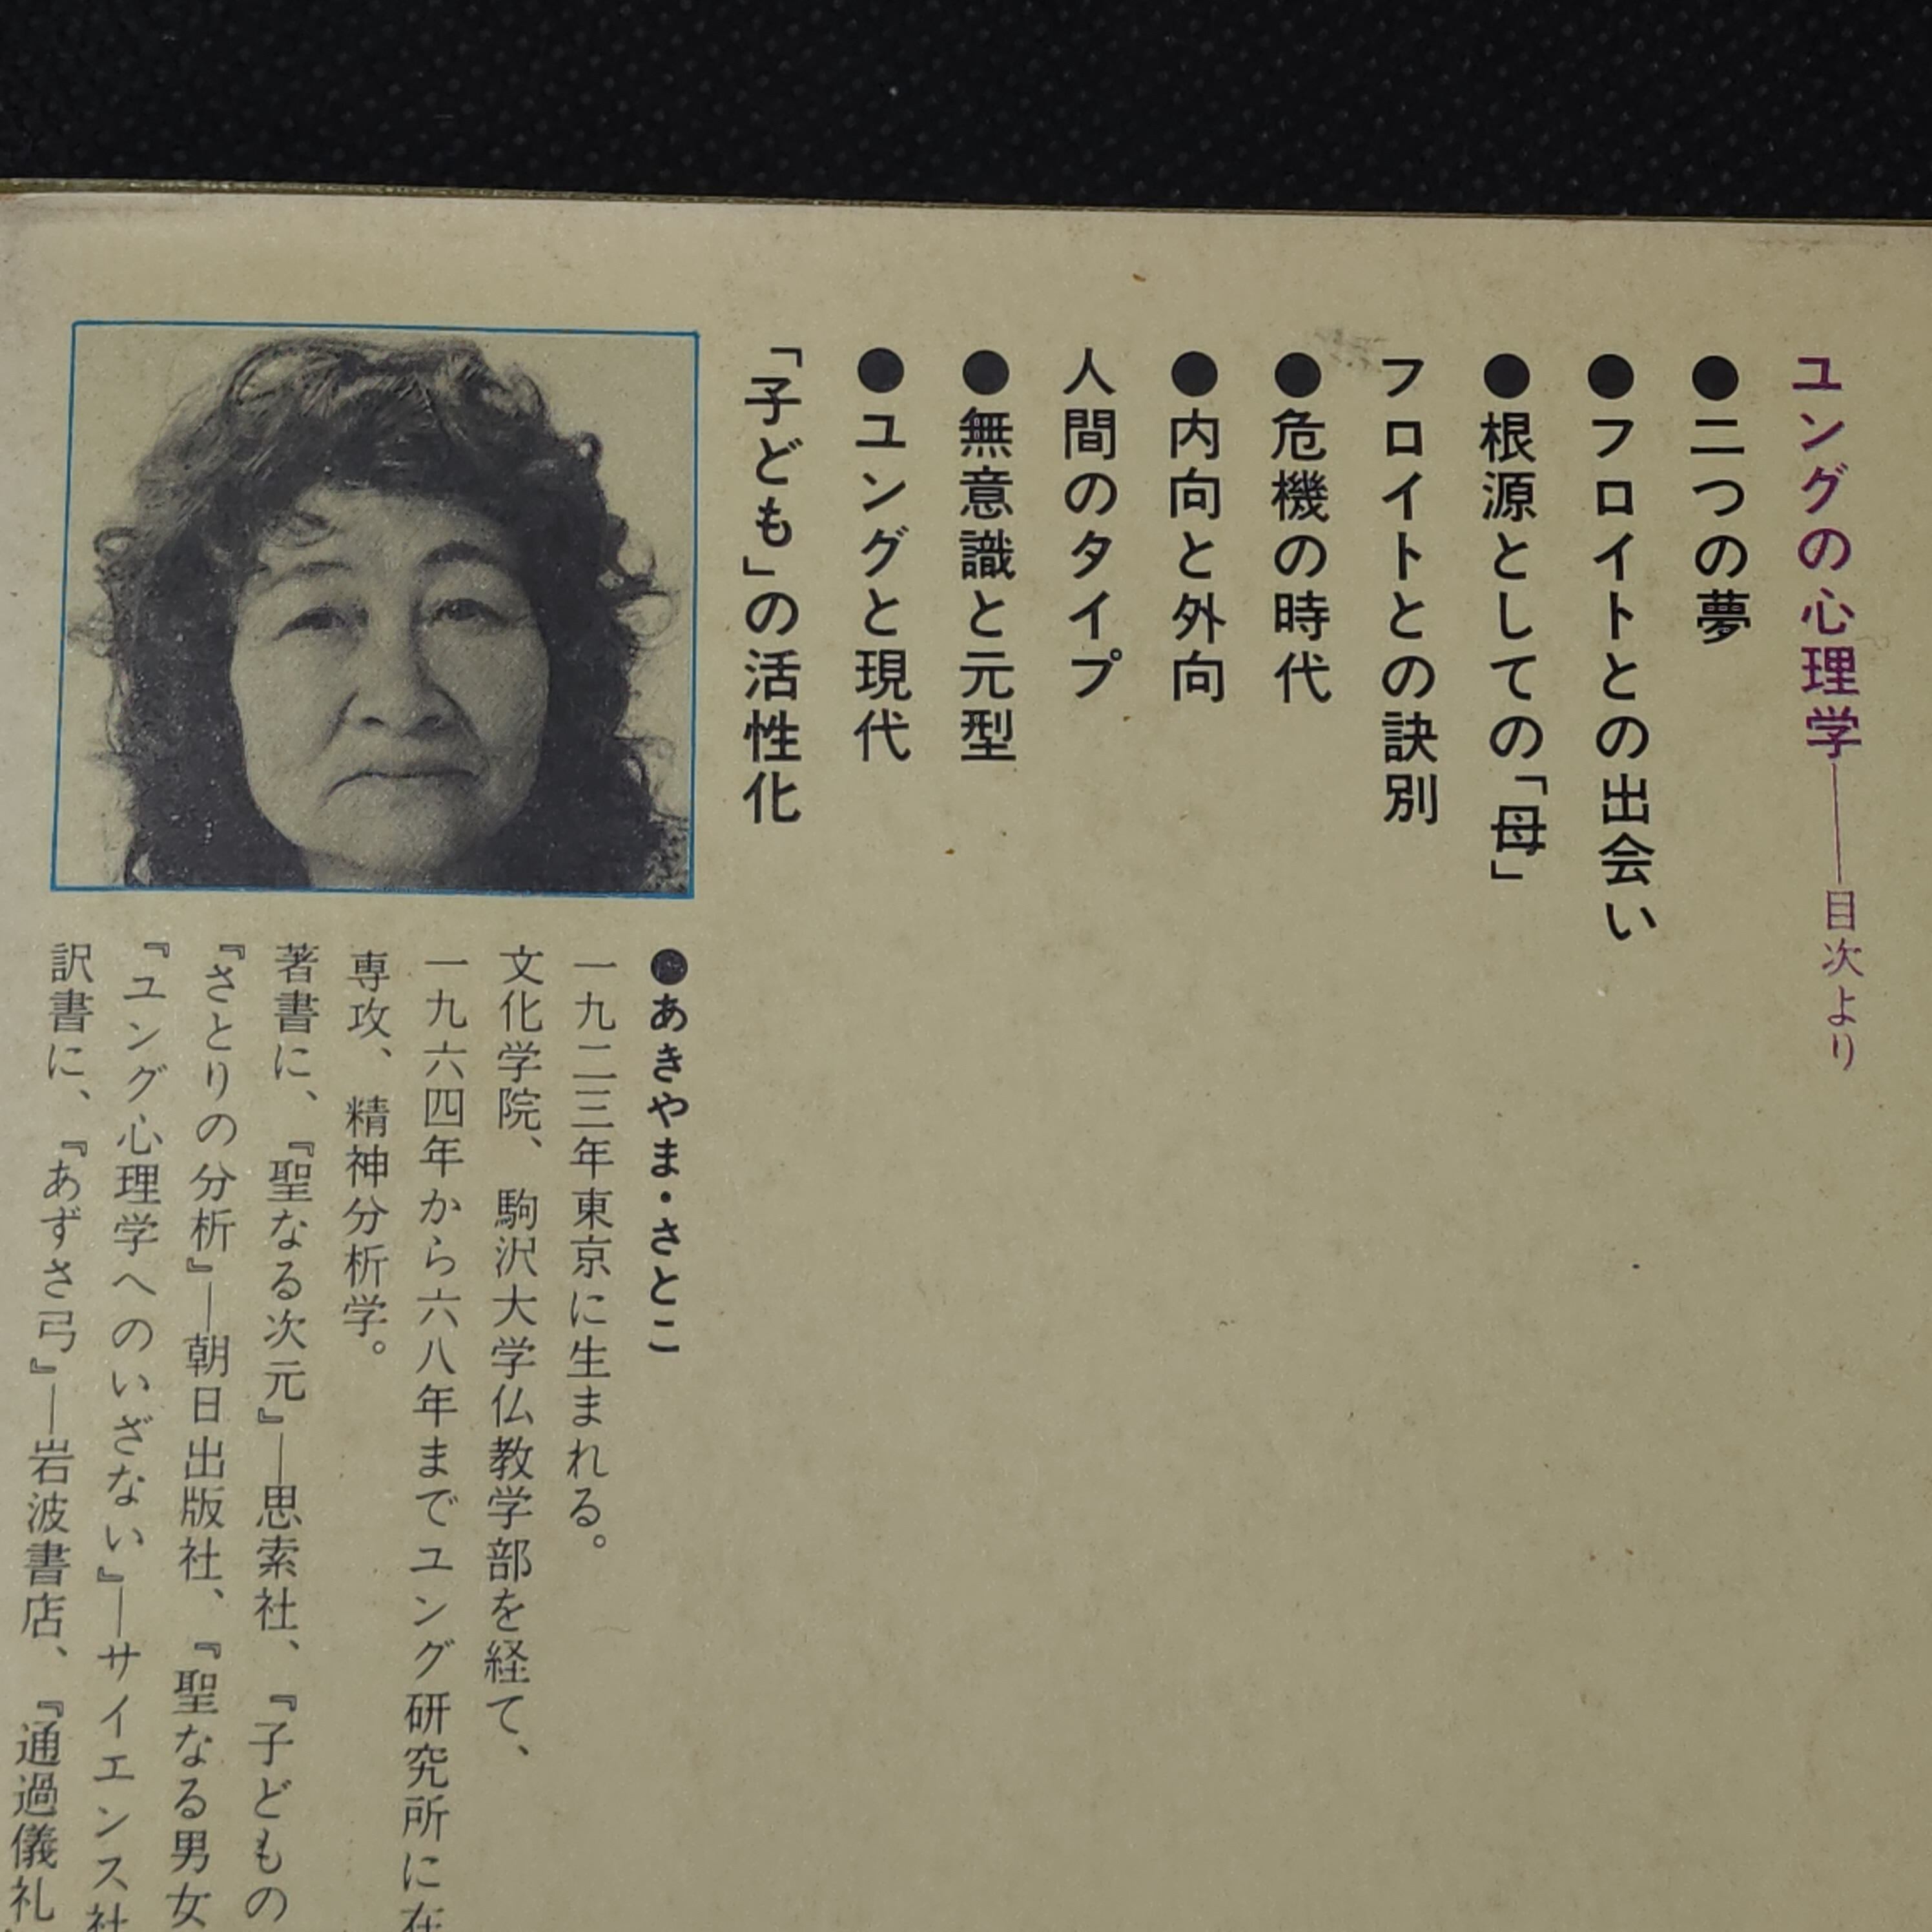 ユングの心理学――目次より
●二つの夢
●フロイトとの出会い
●根源としての「母」
フロイトとの訣別
●危機の時代
●内向と外向
人間のタイプ
●無意識と元型
●ユングと現代
「子ども」の活性化
●あきやま・さとこ
一九二三年東京に生まれる。
文化学院、駒沢大学仏教学部を経て、
一九六四年から六八年までユング研究所に在
専攻、精神分析学。
著書に、『聖なる次元』―思索社、『子どもの
『さとりの分析』―朝日出版社、『聖なる男女
『ユング心理学へのいざない』―サイエンス社
訳書に、『あずさ弓』―岩波書店、『通過儀礼